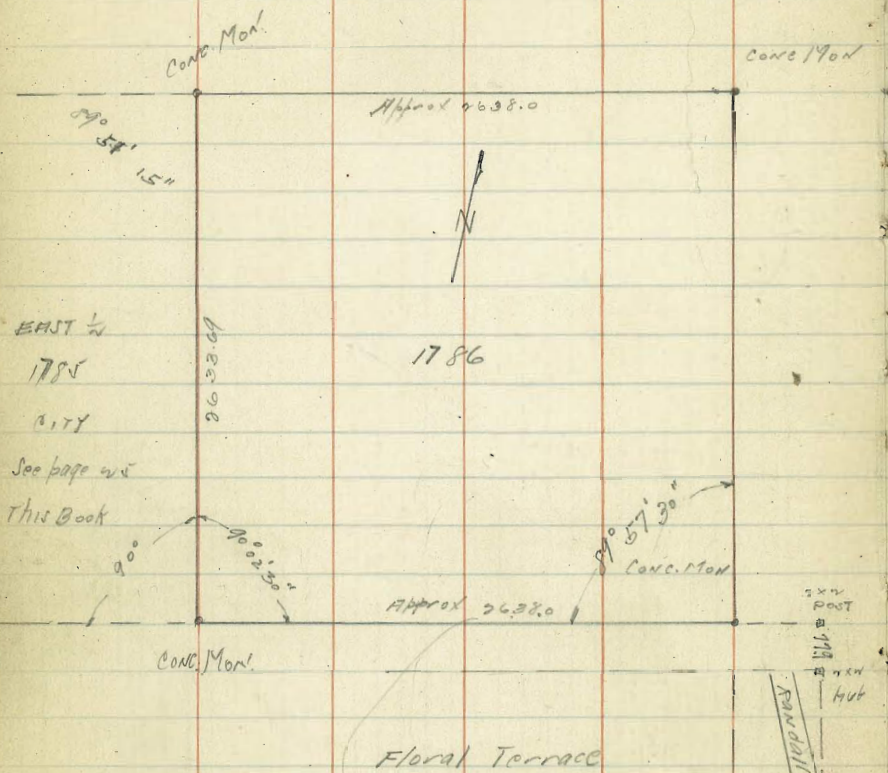 Conc. Mon.
Conc Mon
Approx 2638.0
89°
57'
15"
N
EAST 1/2
1785
CITY
See page 25
This Book
2633.69
1786
90°
90° 02' 30"
89° 57' 30"
Conc. Mon
Approx 2638.0
Conc. Mon.
2x2
Post
2x2
Hub
Randall
Floral Terrace